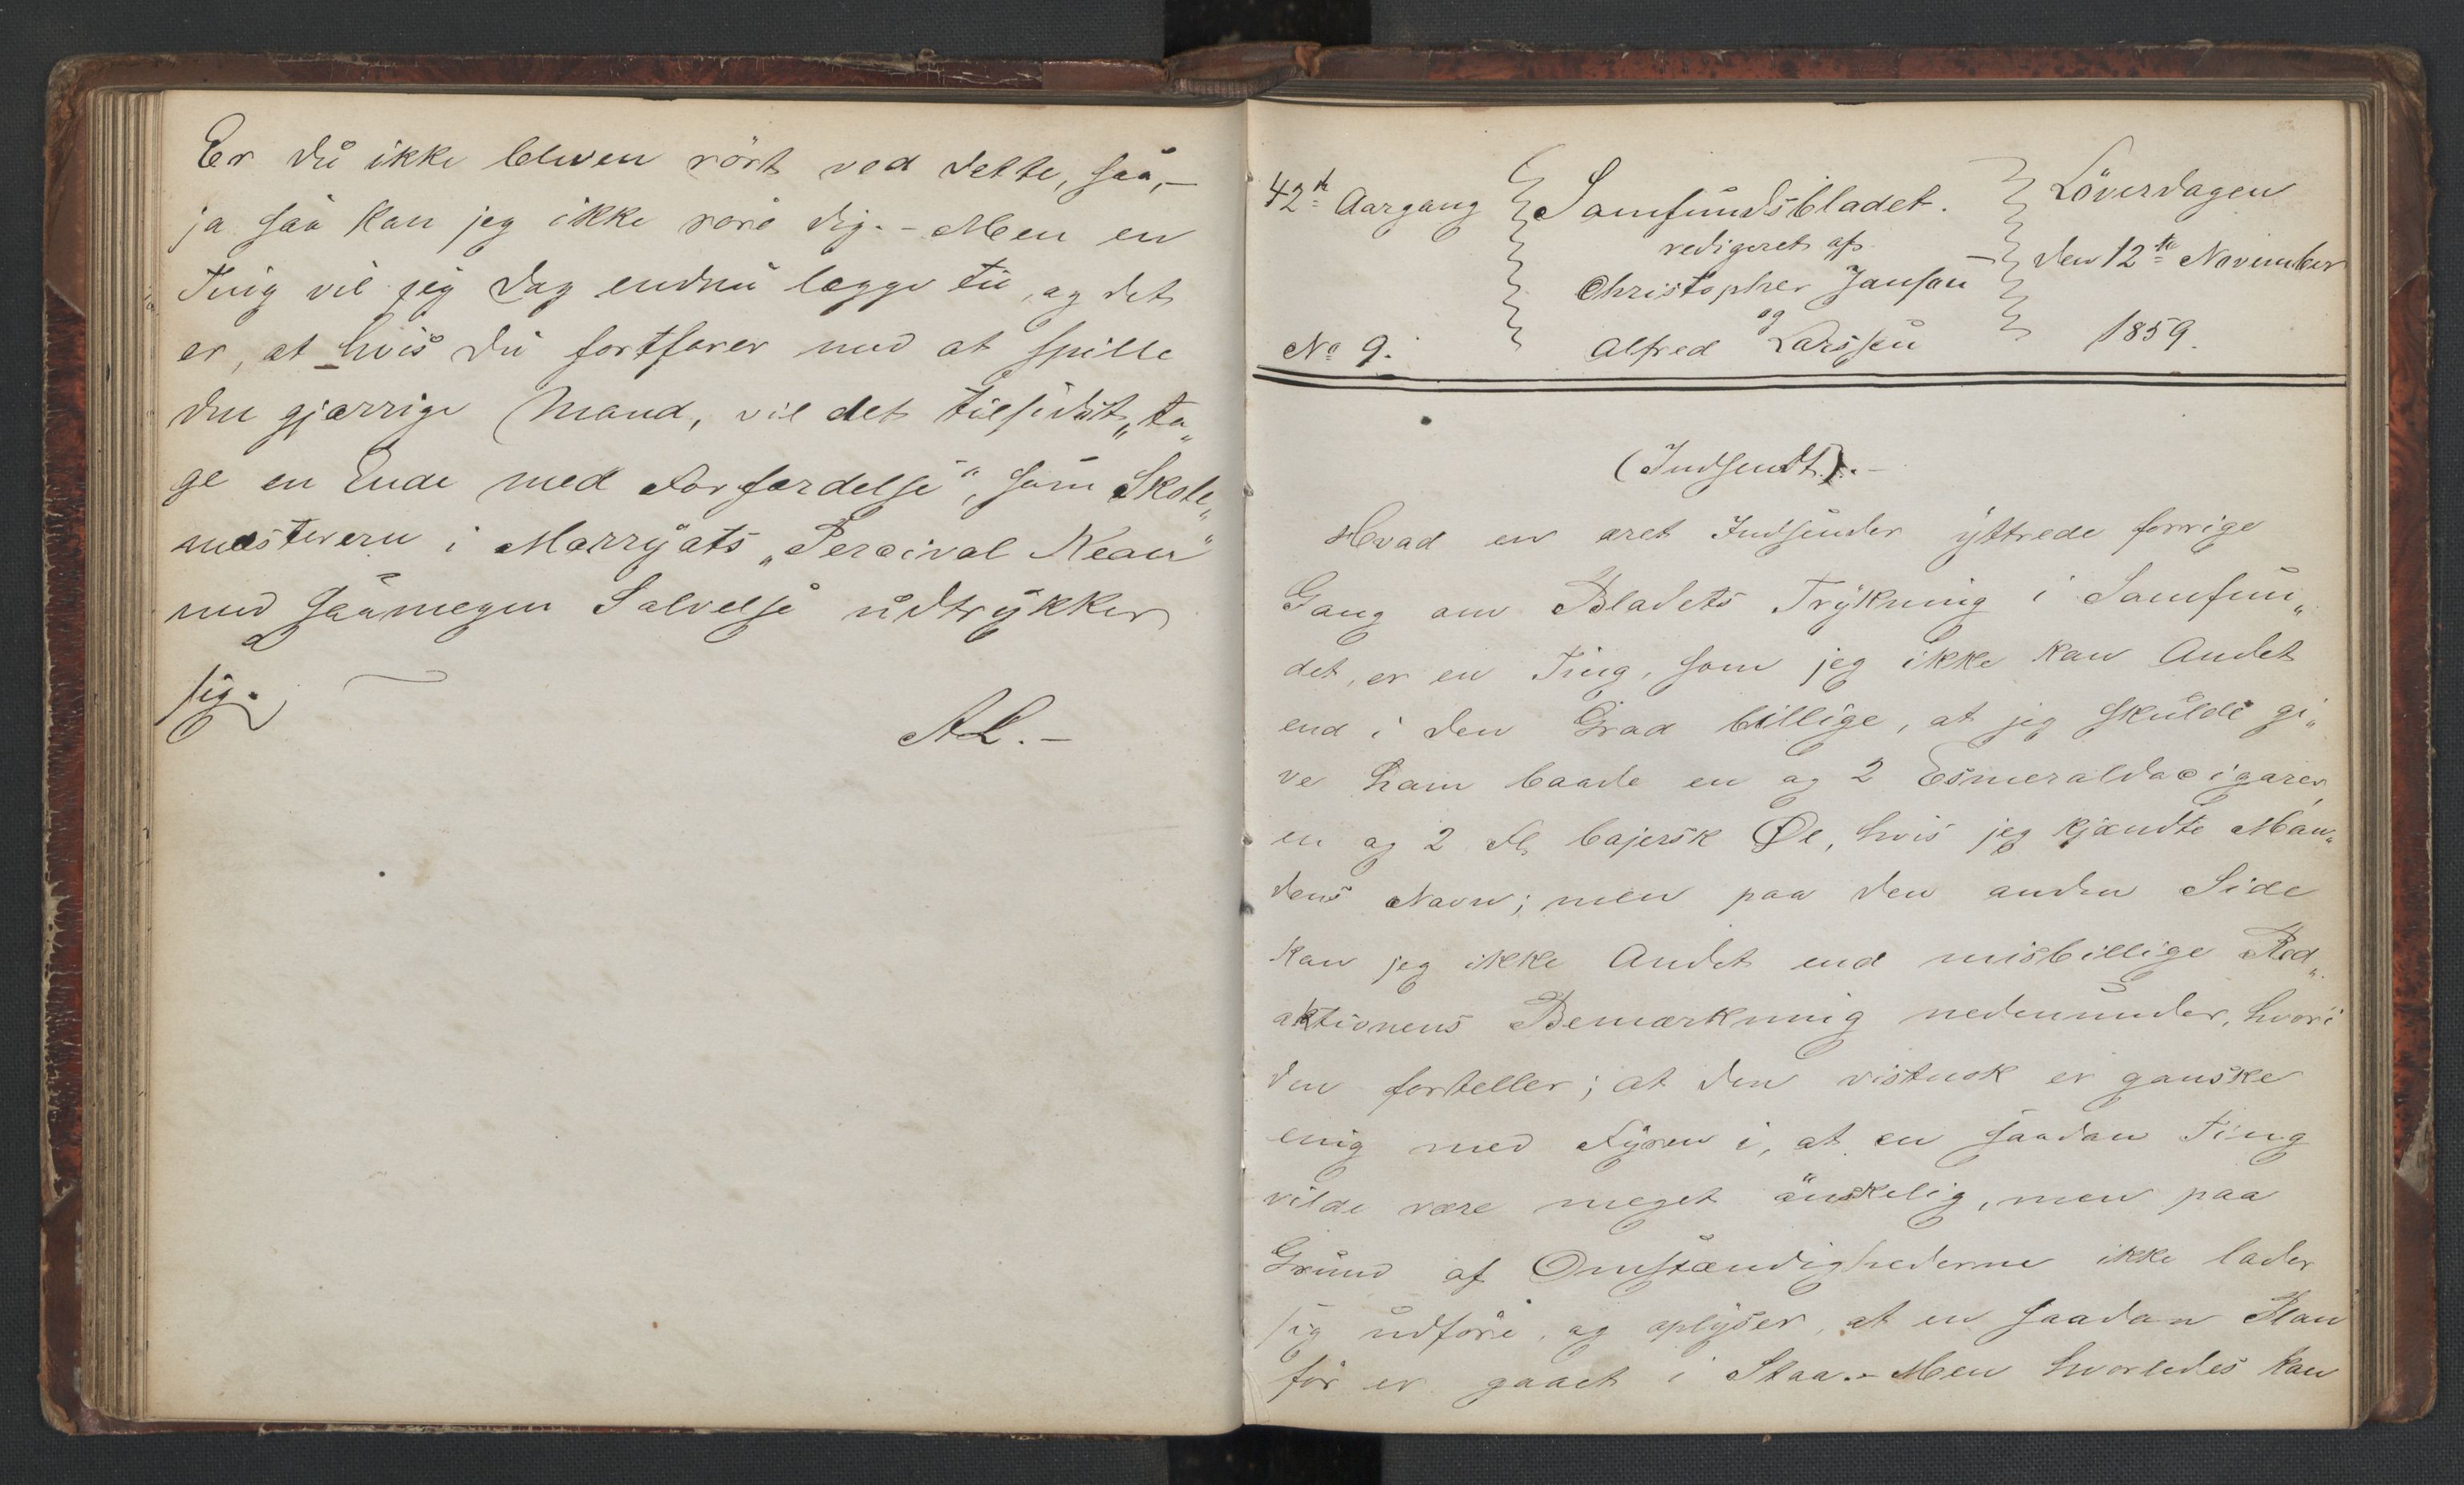 Er du ikke bleven rört ved dette, saa,—
ja saa kan jeg ikke röre dig. – Men en
Ting vil jeg dog endnu lægge til, og det
er, at hvis du fortfarer med at spille
den gjærrige Mand, vil det tilsidst „ta„
ge en Ende med Forfærdelse“, som Skole„
mesteren i Marryats „Percival Kean“
med saamegen Salvelse udtrykker
sig.
A.L. –
42de Aargang
No 9.
Samfundsbladet.
redigeret af
Christopher Janson
og
Alfred Larssen
Löverdagen
den 12te November
1859.
(Indsendt). –
Hvad en æret Indsender yttrede forrige
Gang om Bladets Trykning i Samfun„
det, er en Ting, som jeg ikke kan Andet
end i den Grad billige, at jeg skulde gi„
ve ham baade en og 2 Esmeraldacigarer,
en og 2 Fl bajersk Øl, hvis jeg kjendte Man„
dens Navn; men paa den anden Side
kan jeg ikke Andet end misbillige Red„
aktionens Bemærkning nedenunder, hvori
den forteller; at den vistnok er ganske
enig med Fyren i, at en saadan Ting
vilde være meget önskelig, men paa
Grund af Omstændighederne ikke lader
sig udföre, og oplyser, at en saadan Plan
för er gaaet i Staa. – Men hvorledes kan